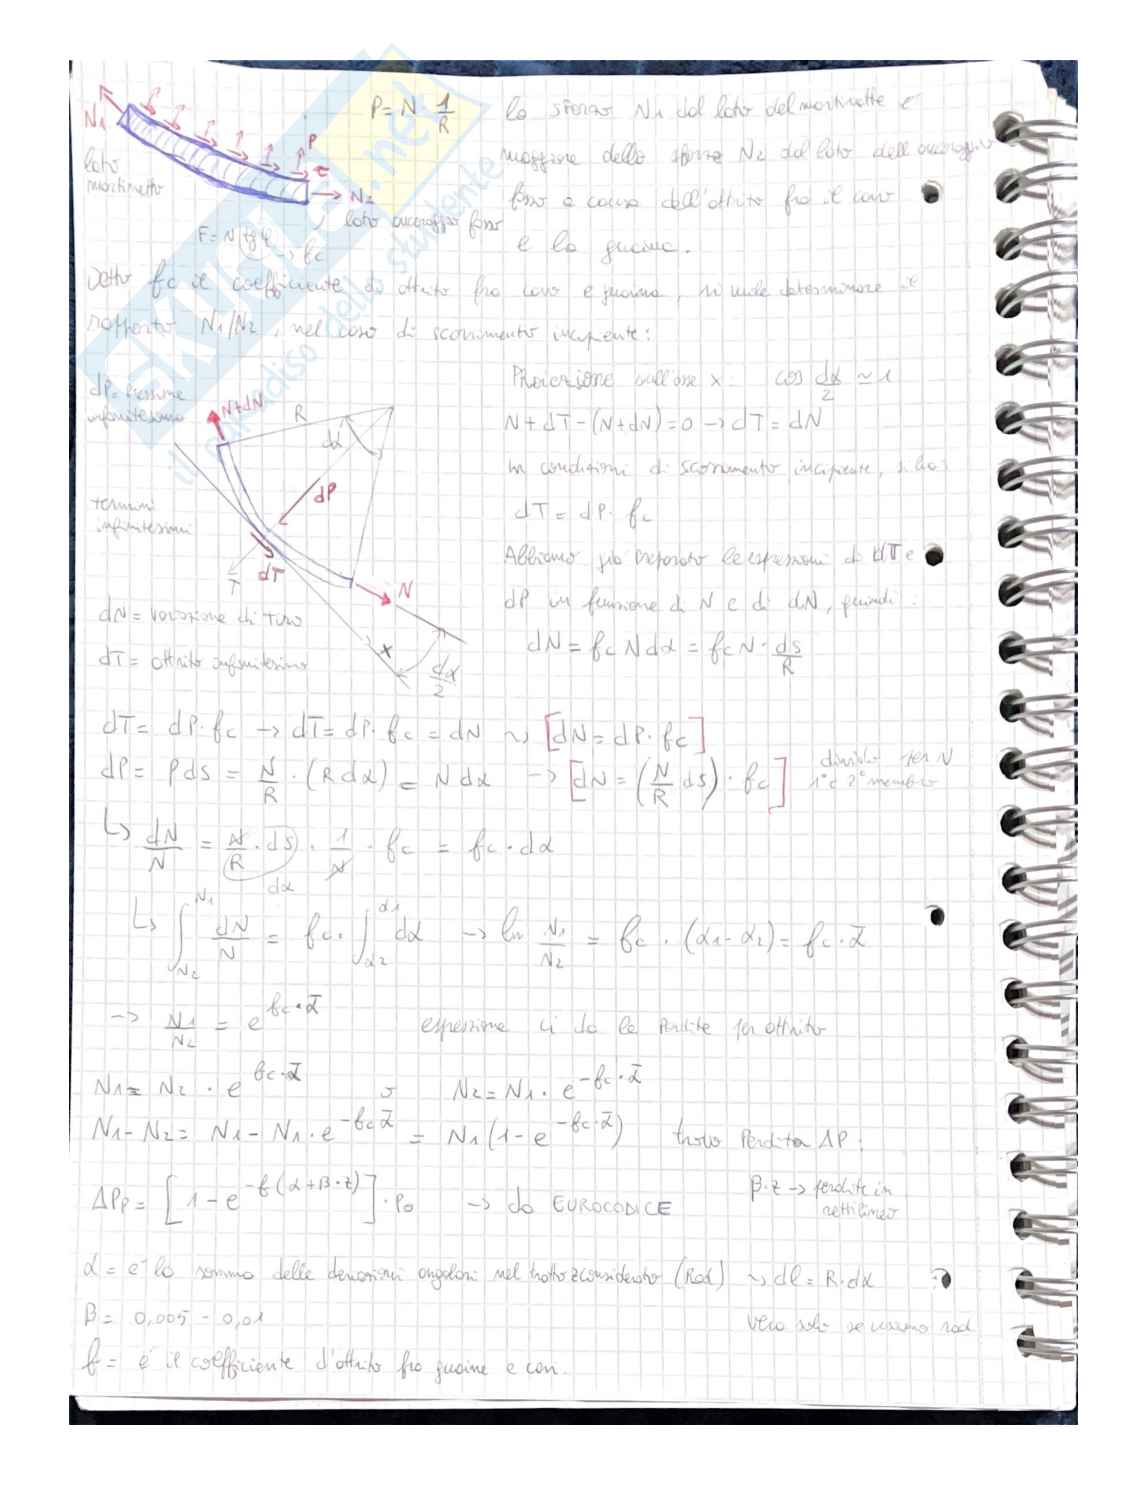 P = N · 1/R
lo sforzo N1 dal lato del martinetto è
maggiore dello sforzo N2 dal lato dell'ancoraggio
fisso a causa dell'attrito fra il cavo
e la guaina.
N1
lato
martinetto
P
τ
N2
lato ancoraggio fisso
F = N tg φ → fc
Detto fc il coefficiente di attrito fra cavo e guaina, si vuole determinare il
rapporto N1/N2, nel caso di scorrimento incipiente:
dP = Pressione
infinitesima
N+dN
R
dα
dP
termini
infinitesimi
T
dT
N
x
dα/2
dN = variazione di tiro
dT = attrito infinitesimo
Proiezione sull'asse x: cos dα/2 ≃ 1
N + dT - (N+dN) = 0 → dT = dN
in condizioni di scorrimento incipiente, si ha:
dT = dP · fc
Abbiamo già preparato le espressioni di dT e
dP in funzione di N e di dN, quindi:
dN = fc N dα = fc N · ds/R
dT = dP · fc → dT = dP · fc = dN ~> [dN = dP · fc]
dP = P ds = N/R · (R dα) = N dα → [dN = (N/R ds) · fc]
divido per N
1° e 2° membro
↳ dN/N = N/R · ds · 1/N · fc = fc · dα
dα
↳ ∫_{N2}^{N1} dN/N = fc · ∫_{α2}^{α1} dα → ln N1/N2 = fc · (α1 - α2) = fc · ᾱ
→ N1/N2 = e^{fc · ᾱ} espressione ci da le perdite per attrito
N1 = N2 · e^{fc · ᾱ} o N2 = N1 · e^{-fc · ᾱ}
N1 - N2 = N1 - N1 · e^{-fc ᾱ} = N1 (1 - e^{-fc · ᾱ}) trovo Perdita ΔP:
ΔPp = [1 - e^{-f(α+β·z)}] · P0 → da EUROCODICE
β · z → perdite in
rettilineo
α = è la somma delle deviazioni angolari nel tratto z considerato (Rad) ~> dl = R · dα
β = 0,005 - 0,01
vero solo se usiamo rad
f = è il coefficiente d'attrito fra guaine e cavi.
SKUOLA.net
il paradiso dello studente